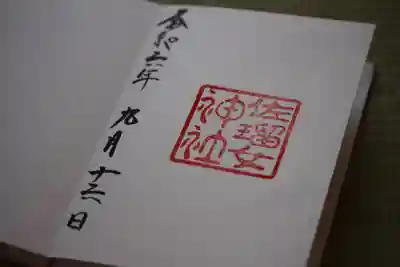 佐瑠女
神社
令和六年 九月十六日